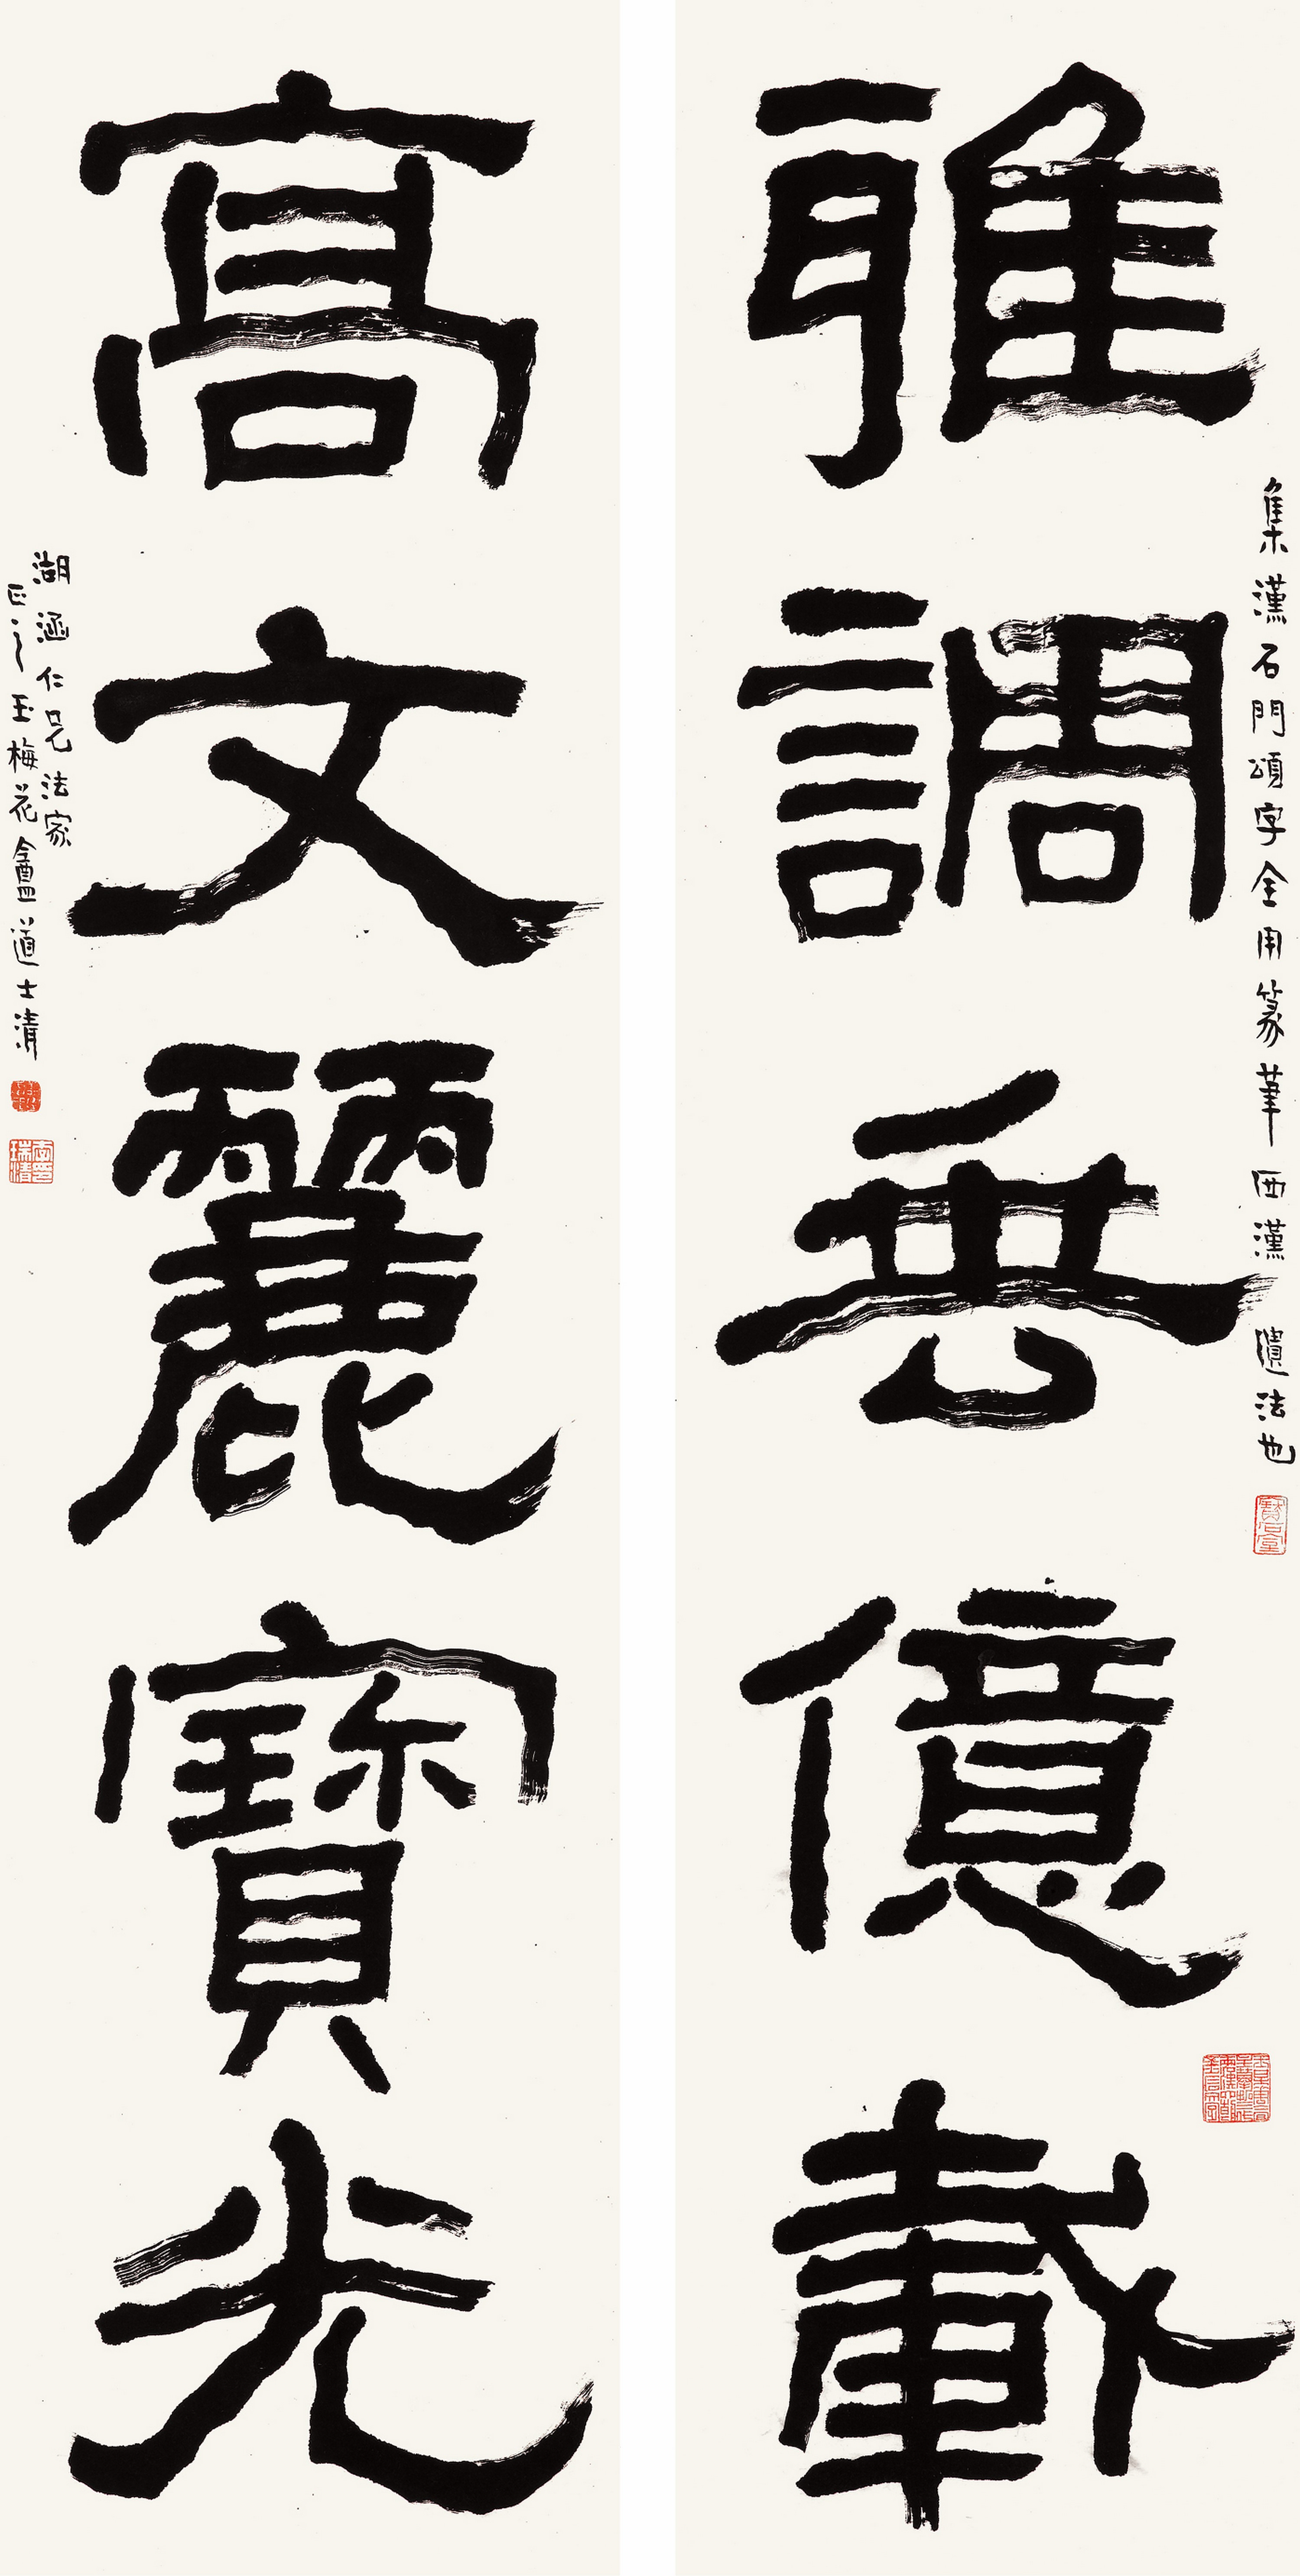 雅調垂億載
集漢石門頌字全用篆筆西漢遺法也
高文麗寶光
湖涵仁兄法家
正之玉梅花盦道士清
李瑞清